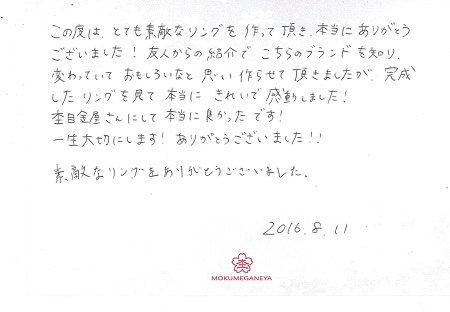 この度は、とても素敵なリングを作って頂き、本当にありがとう
ございました！友人からの紹介でこちらのブランドを知り、
変わっていておもしろいなと思い作らせて頂きましたが、完成
したリングを見て本当にきれいで感動しました！
杢目金屋さんにして本当に良かったです！
一生大切にします！ありがとうございました！！
素敵なリングをありがとうございました。
2016.8.11
MOKUMEGANEYA